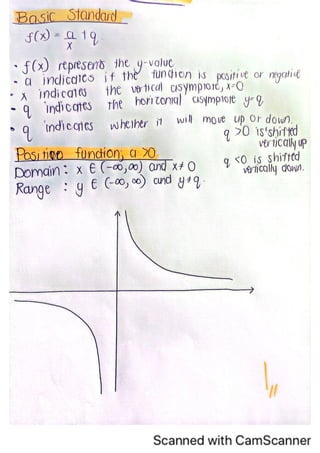 Basic Standard
f(x) = a/x + q
• f(x) represents the y-value
• a indicates if the function is positive or negative
• x indicates the vertical asymptote, x=0
• q indicates the horizontal asymptote y=q.
• q indicates whether it will move up or down.
q >0 is shifted
vertically up
q <0 is shifted
vertically down.
Positive function, a >0.
Domain : x ∈ (-∞,∞) and x≠0
Range : y ∈ (-∞,∞) and y≠q.
Scanned with CamScanner